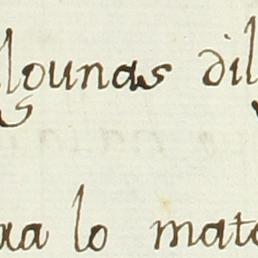 lgunas dil
ra lo mate